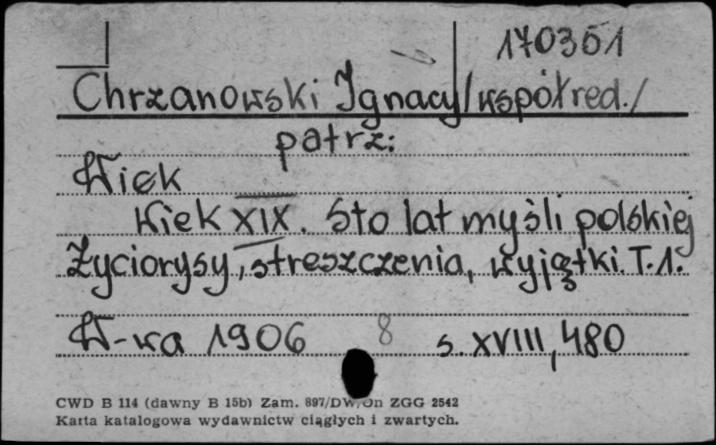 170351
Chrzanowski Ignacy /współred./
patrz:
Wiek
Wiek XIX. Sto lat myśli polskiej
Życiorysy, streszczenia, wyjątki. T.1.
W-wa 1906 8 s. XVIII, 480
CWD B 114 (dawny B 15b) Zam. 897/DW/Un ZGG 2542
Karta katalogowa wydawnictw ciągłych i zwartych.